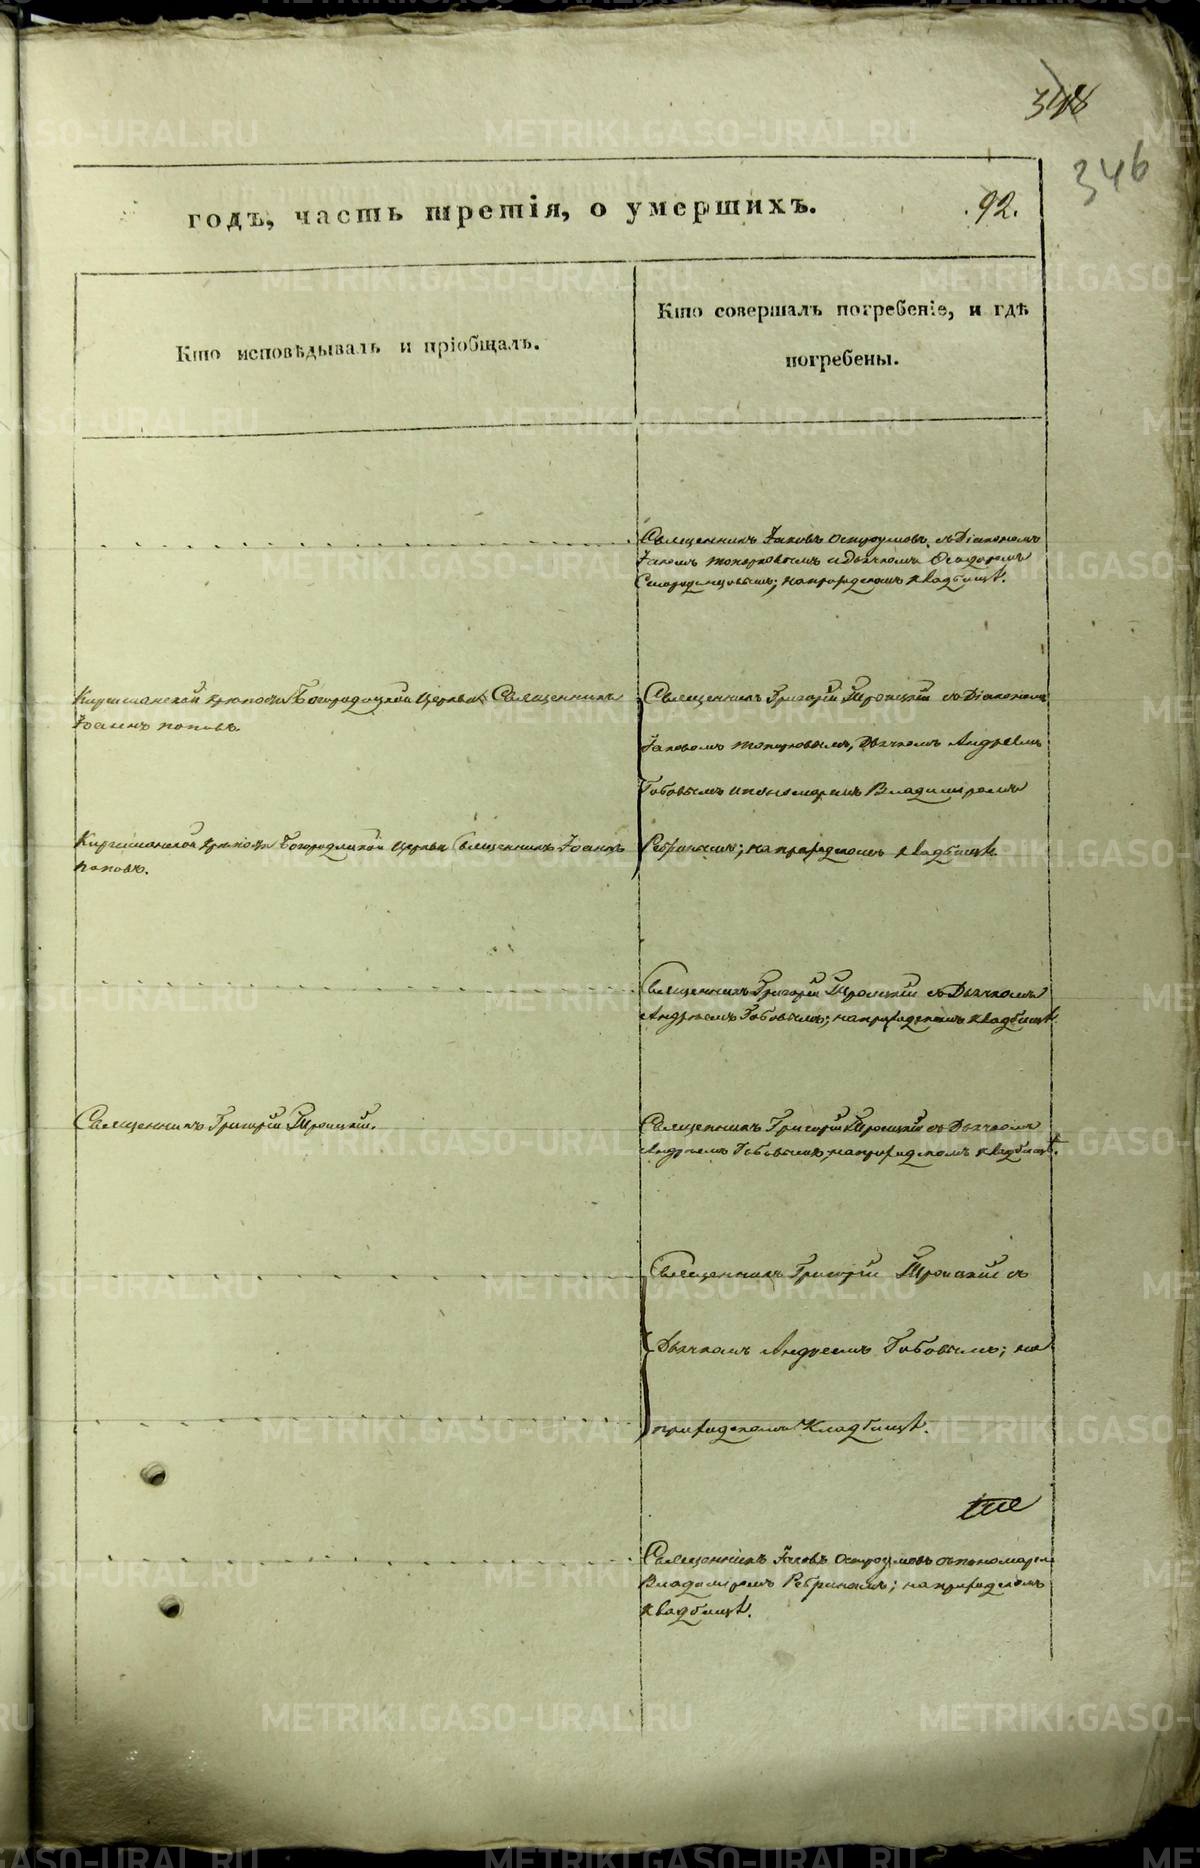 348
346
годъ, часть третія, о умершихъ.
.92.
Кто исповѣдывалъ и пріобщалъ.
Кто совершалъ погребеніе, и гдѣ
погребены.
Священникъ Іаковъ Остроумовъ, съ Діакономъ
и Дьячкомъ Ѳеодоромъ
на приходскомъ кладбищѣ.
Богородицкой Церкви Священникъ
Іоаннъ Поповъ.
Священникъ Григорій Троицкій съ Діакономъ
Іаковомъ Топорковымъ, Дьячкомъ Андреемъ
Бобовымъ и пономаремъ Владимиромъ
на приходскомъ кладбищѣ.
Богородицкой Церкви Священникъ Іоаннъ
Поповъ.
Священникъ Григорій Троицкій съ Дьячкомъ
Андреемъ Бобовымъ; на приходскомъ кладбищѣ.
Священникъ Григорій Троицкій.
Священникъ Григорій Троицкій съ Дьячкомъ
Андреемъ Бобовымъ, на приходскомъ кладбищѣ.
Священникъ Григорій Троицкій съ
Дьячкомъ Андреемъ Бобовымъ; на
приходскомъ Кладбищѣ.
Священникъ Іаковъ Остроумовъ съ пономаремъ
Владимиромъ на приходскомъ
кладбищѣ.
METRIKI.GASO-URAL.RU